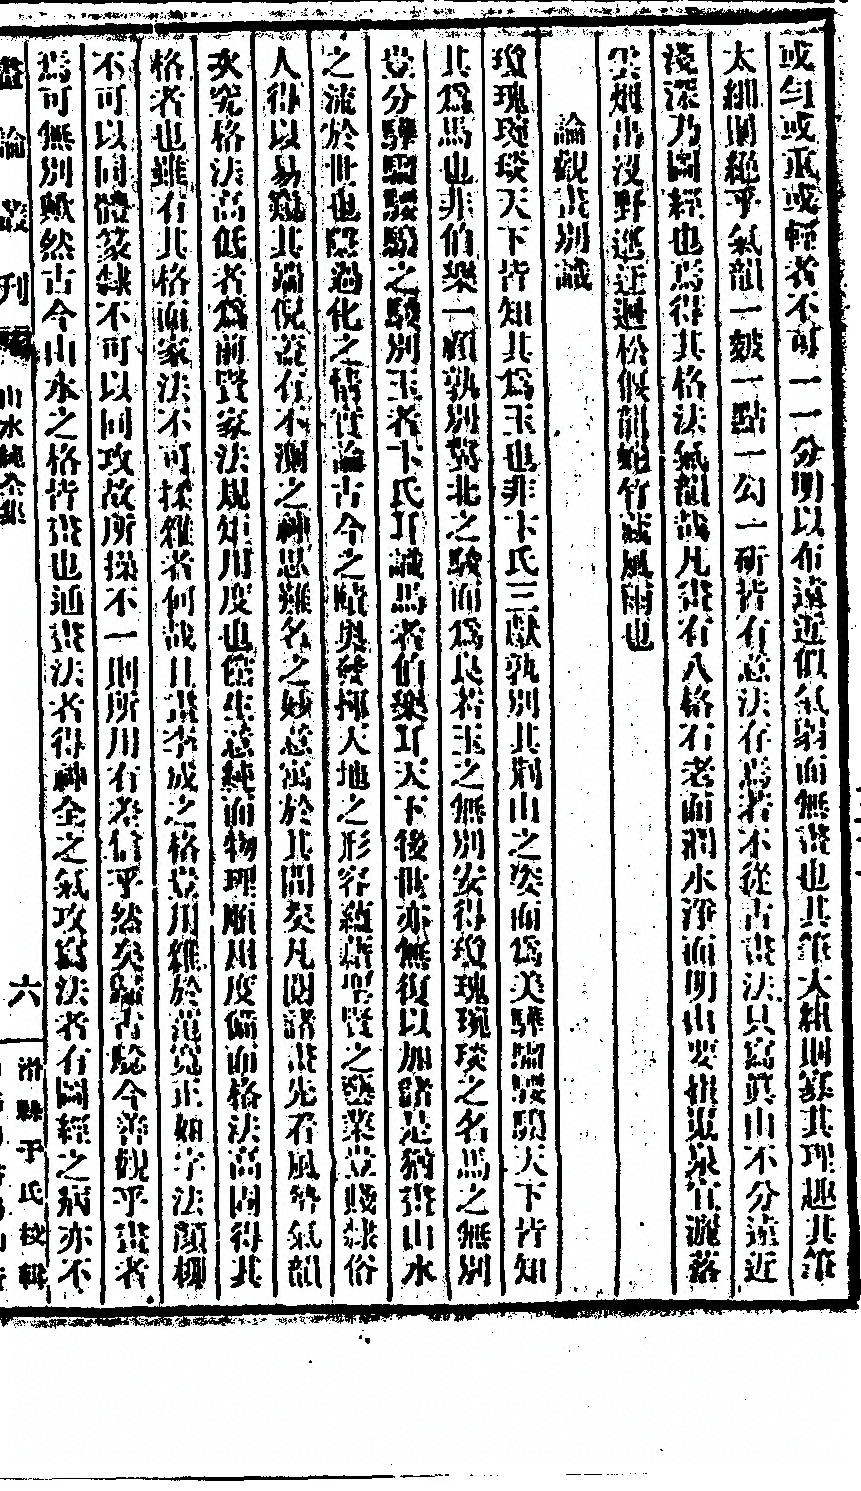 或勻或重或輕者不可一一分明以布遠近似氣弱而無畫也其筆大細則寡其理趣其筆
太細則絕乎氣韻一皴一點一勾一斫皆有意法存焉若不從古畫法只寫眞山不分遠近
淺深乃圖經也焉得其格法氣韻哉凡畫有八格石老而潤水淨而明山要崔嵬泉宜灑落
雲烟出沒野逕迂迴松偃龍蛇竹藏風雨也
論觀畫別識
瓊瑰琬琰天下皆知其爲玉也非卞氏三獻孰別其荆山之姿而爲美驊騮騕駬天下皆知
其爲馬也非伯樂一顧孰別冀北之駿而爲良若玉之無別安得瓊瑰琬琰之名馬之無別
豈分驊騮騕駬之駿別玉者卞氏耳識馬者伯樂耳天下後世亦無復以加諸是猶畫山水
之流於世也隱過化之情實論古今之賾奧發揮天地之形容蘊藉聖賢之藝業豈賤隸俗
人得以易窺其端倪蓋有不測之神思難名之妙意寓於其間矣凡閱諸畫先看風勢氣韻
次究格法高低者爲前賢家法規矩用度也儻生意純而物理順用度備而格法高固得其
格者也雖有其格而家法不可揉雜者何哉且畫李成之格豈用雜於范寬正如字法顏柳
不可以同體篆隸不可以同攻故所操不一則所用有差信乎然矣歸古驗今善觀乎畫者
焉可無別歟然古今山水之格皆畫也通畫法者得神全之氣攻寫法者有圖經之病亦不
畫論叢刊 山水純全集 六